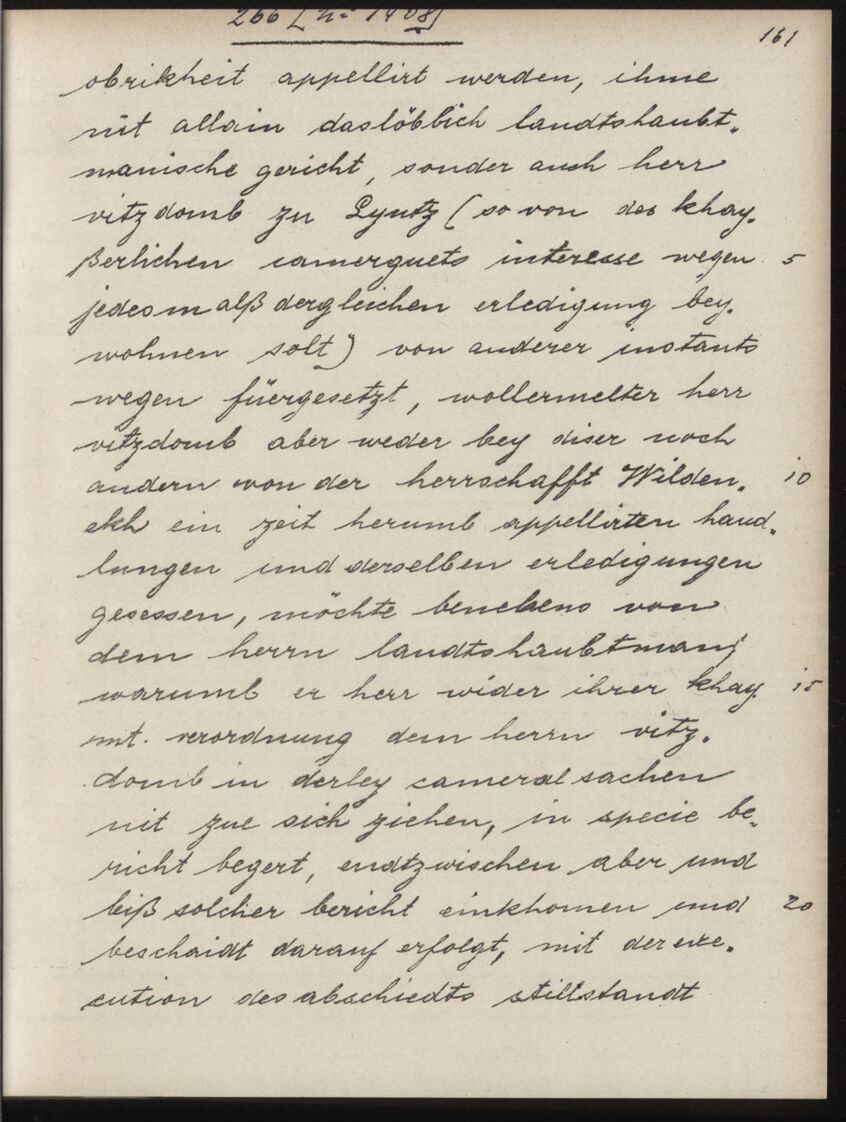 266 [Nr 1408]
161
obrikheit appellirt werden, ihme
nit allain das löbblich landtshaubt„
manische gericht, sonder auch herr
vitzdomb zu Lyntz (so von des khay„
ßerlichen camerguets interesse wegen 5
jedesmalß dergleichen erledigung bey„
wohnen solt) von anderer instants
wegen füergesetzt, wollermelter herr
vitzdomb aber weder bey diser noch
andern von der herrschafft Wilden„ 10
ekh ein zeit herumb appellirten hand„
lungen und derselben erledigungen
gesessen, möchte benebens von
dem herrn landtshaubtmann
warumb er herr wider ihrer khay. 15
mt. verordnung dem herrn vitz„
domb in derley cameral sachen
nit zue sich ziehen, in specie be„
richt begert, endtzwischen aber und
biß solcher bericht einkhomen und 20
beschaidt darauf erfolgt, mit der exe„
cution des abschiedts stillstandt